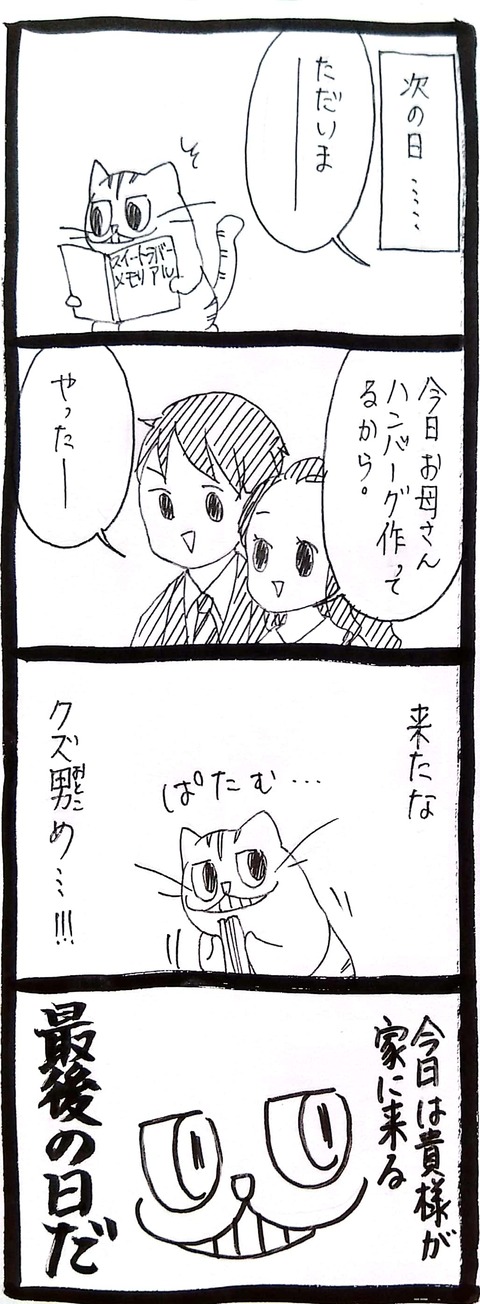 次の日……
ただいま――
スイートラバー
メモリアル
今日お母さん
ハンバーグ作って
るから。
やったー
来たな
ぱたむ…
クズ男め…!!!
おとこ
今日は貴様が
家に来る
最後の日だ